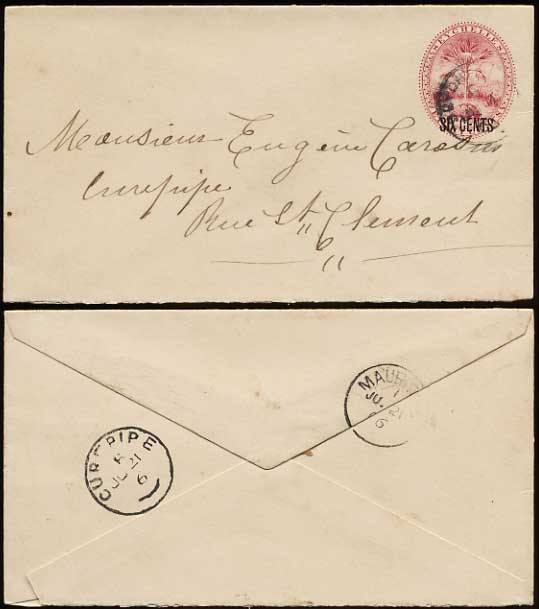 SEYCHELLES
SIX CENTS
Monsieur Eugène
Curepipe
Rue St,, Clement
MAURI
JU. 21
06
CUREPIPE
JU 21
6